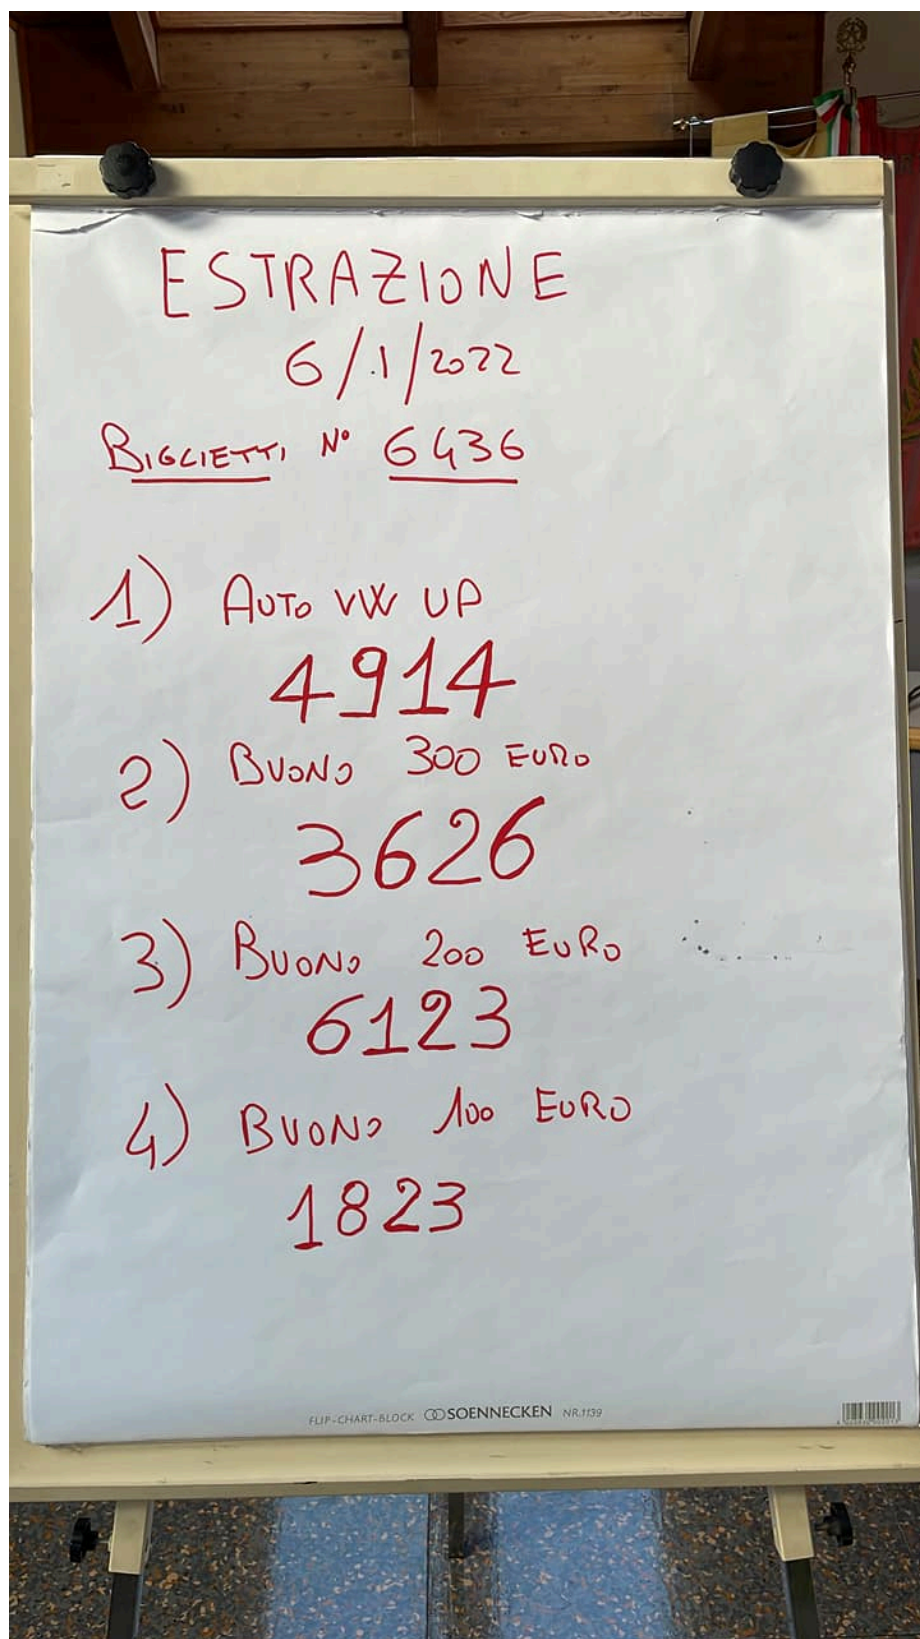 ESTRAZIONE
6/1/2022
BIGLIETTI N° 6436
1) AUTO VW UP
4914
2) BUONO 300 EURO
3626
3) BUONO 200 EURO
6123
4) BUONO 100 EURO
1823
FLIP-CHART-BLOCK SOENNECKEN NR.1139